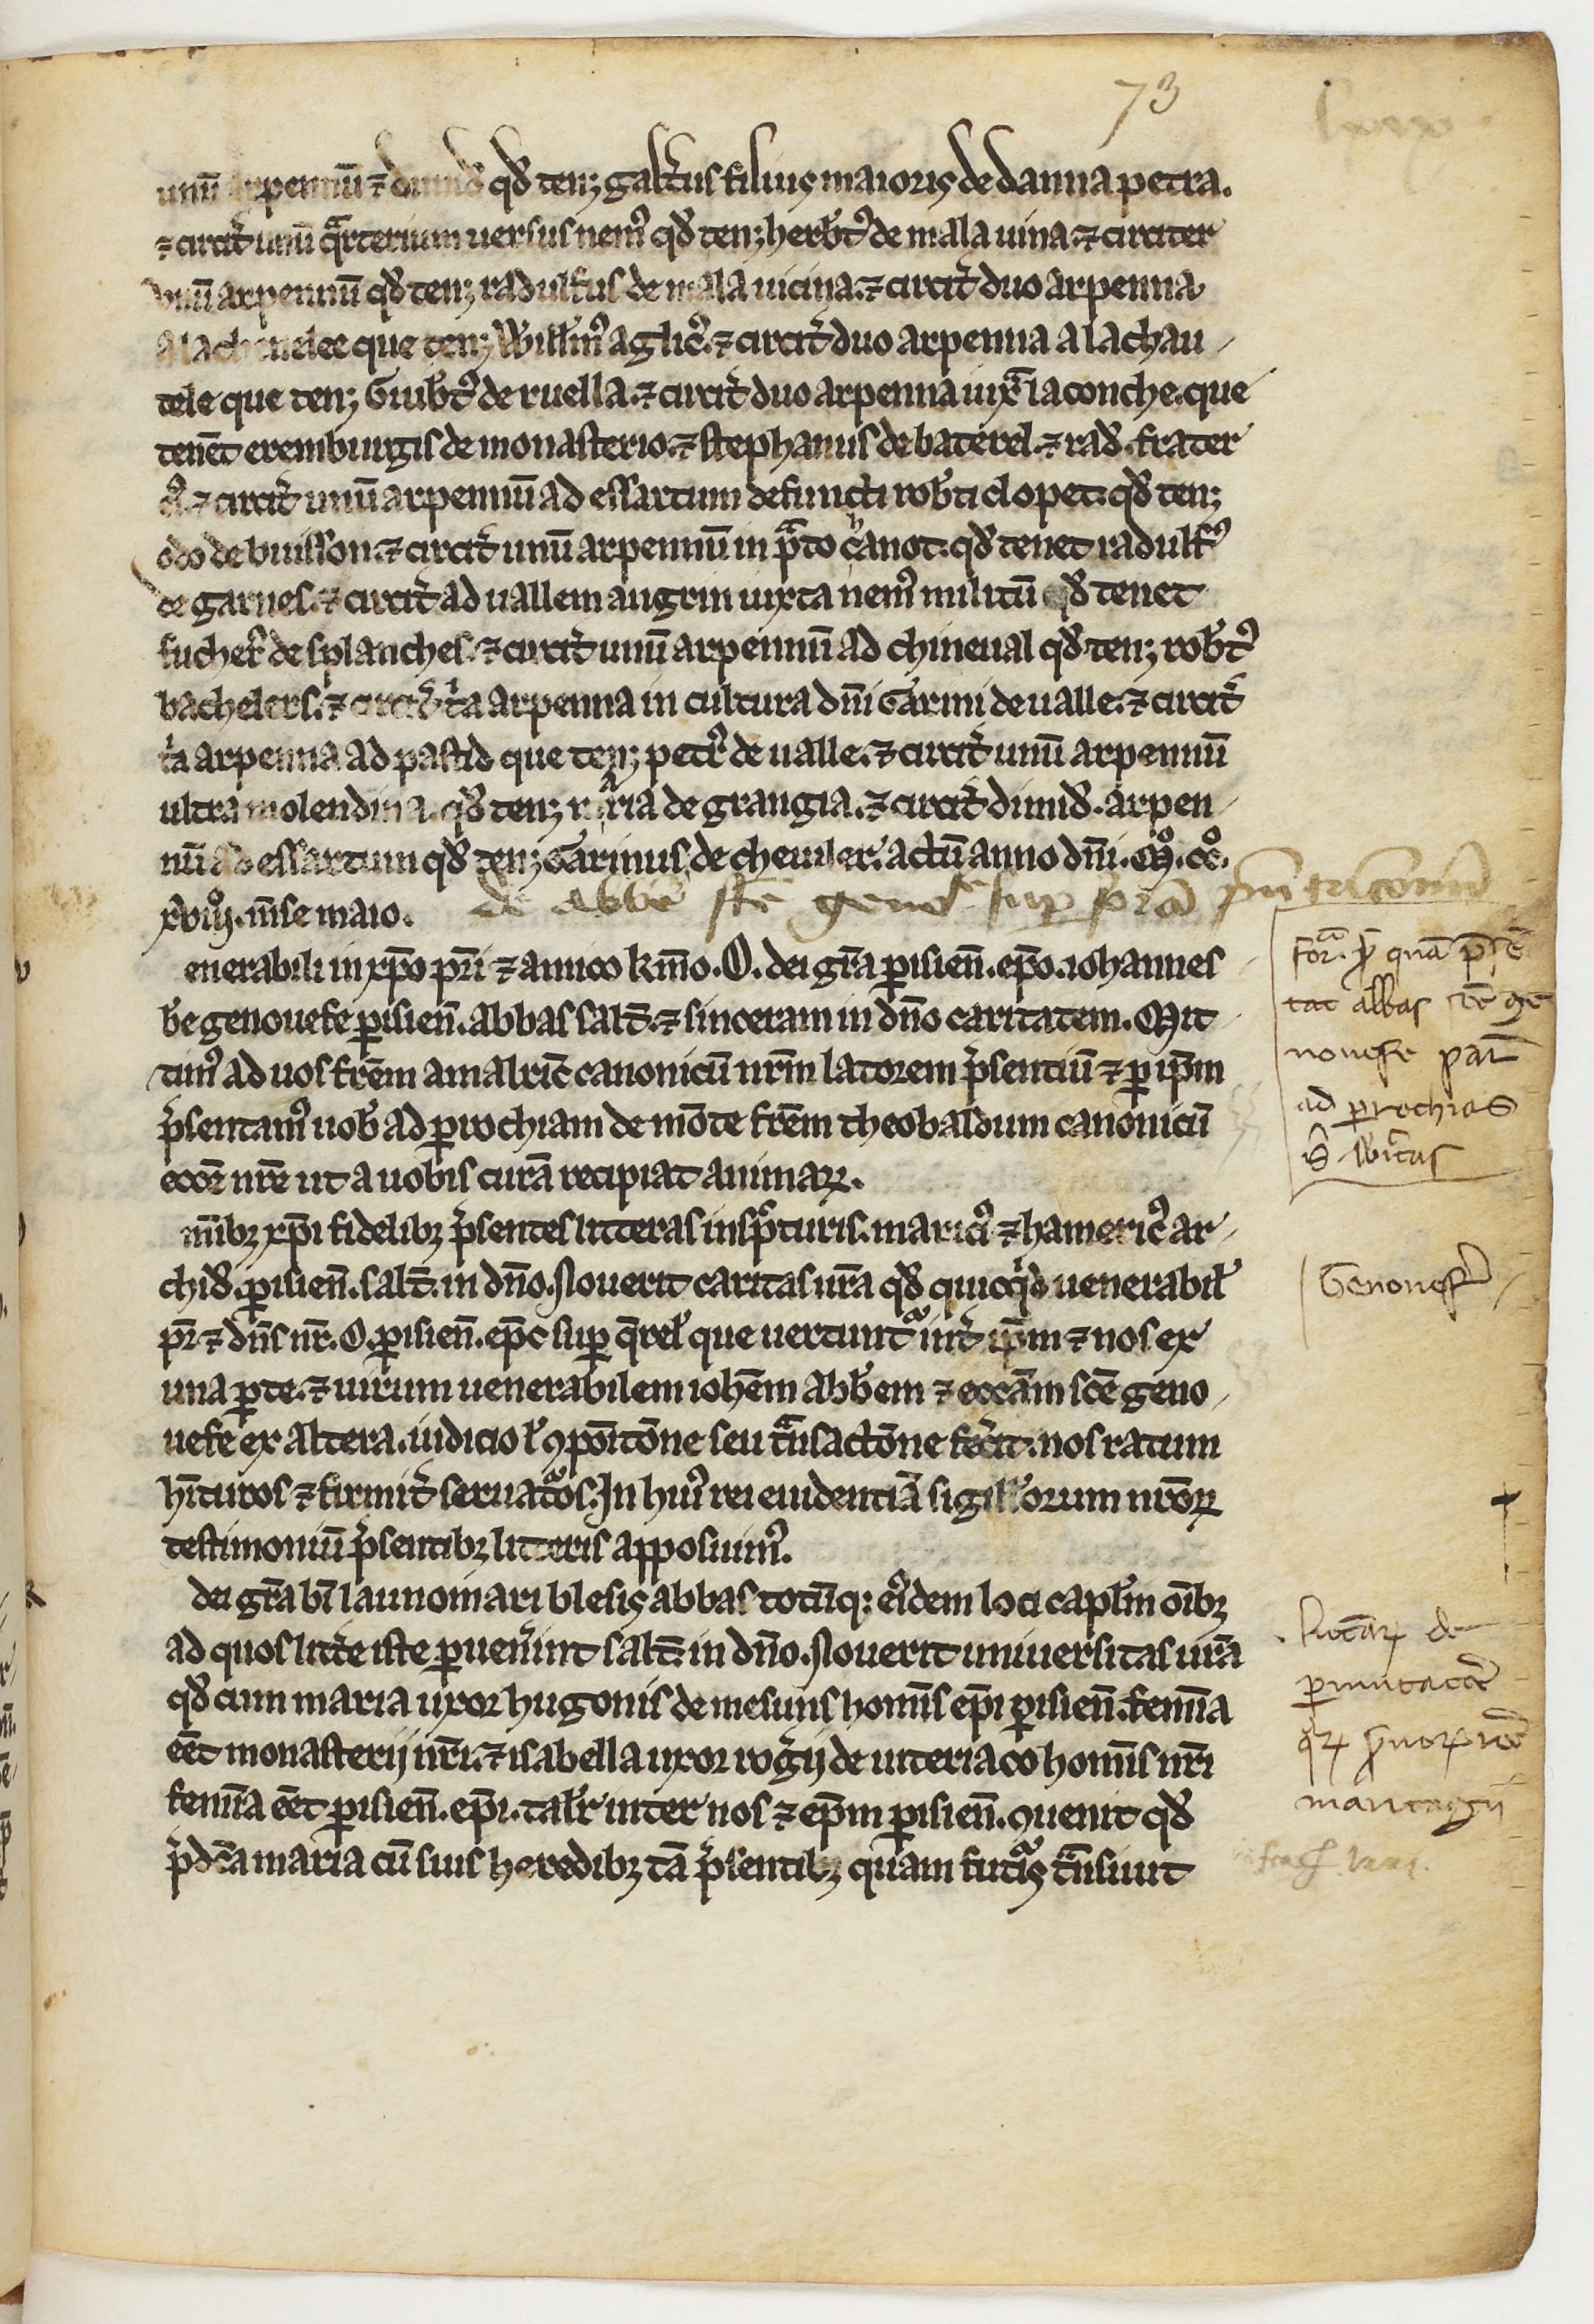 73
lxix
unū arpennū ⁊ dimid̕ qd̕ ten; galt̕us filius maioris de danna petra.
⁊ circit̕ unū qᵃrterium uersus nem̕ qd̕ ten; herb̕t̕ de mala uina. ⁊ circiter
unū arpennū qd̕ ten; radulfus de mala uicina. ⁊ circit̕ duo arpenna
a la que ten; Will̕m̕ aglic̕. ⁊ circit̕ duo arpenna a la chau
tele que ten; Guib̕t̕ de ruella. ⁊ circit̕ duo arpenna iuxᵃ la conche. que
tenēt eremburgis de monasterio. ⁊ stephanus de baterel. ⁊ rad̕. frater
ei̕. ⁊ circit̕ unū arpennū ad essartum defuncti rob̕ti clopet. qd̕ ten;
odo de buisson. ⁊ circit̕ unū arpennū in pᵃto canot. qd̕ tenet radulf̕
de garnes. ⁊ circit̕ ad uallem augrin iuxta nem̕ militū qd̕ tenet
fucher̕ de splanches. ⁊ circit̕ unū arpennū ad chineual qd̕ ten; rob̕t̕
bachelers. ⁊ circit̕ tⁱa arpenna in cultura dn̄i Garini de ualle. ⁊ circit̕
tⁱa arpenna ad pastid̕ que ten; petr̕ de ualle. ⁊ circit̕ unū arpennū
ultra molendina. qd̕ ten; maria de grangia. ⁊ circit̕ dimid̕. arpen
nū ad essartum qd̕ ten; Garinus de cheuiler. actū anno dn̄i. M̊. cc̊.
xͦviiij. m̄se maio.
de abbē sc̄e genoᵉ sup p̄n̄tacōnū
enerabili in xp̄o pr̄i ⁊ amico k̄mo. O. dei gr̄a ꝑisien̄. ep̄o. iohannes
b̄e genouefe ꝑisien̄. abbas salt̄. ⁊ sinceram in dn̄o caritatem. Mit
tim̕ ad uos fr̄em amalric̄ canonicū nr̄m latorem p̄sentiū ⁊ ꝑ ip̄m
p̄sentam̕ uob̕ ad ꝑrochiam de mōte fr̄em theobaldum canonicū
ecc̄e nr̄e ut a uobis curā recipiat animaꝝ.
for̄ᵃ. ꝑ quā p̄sē
tat abbas sc̄e ge
nouefe par̄
ad ꝑrochias
mn̄ibꝫ xp̄i fidelibꝫ p̄sentes litteras inspecturis. mauric̕ ⁊ hameric̕ ar
chid̕. ꝑisien̄. salt̄. in dn̄o. Nouerit caritas ur̄a qd̕ quicqⁱd uenerabil̕
pr̄ ⁊ dn̄s nr̄. O. ꝑisien̄. ep̄c sup qᵉrel̕ que uertuntᵘʳ int̕ ip̄m ⁊ nos ex
una ꝑte. ⁊ uirum uenerabilem ioh̄em abb̄em ⁊ ecc̄am sc̄e geno
uefe ex altera. iudicio l̕ ꝯpōitōne seu tᵃnsactōne fec̕it. nos ratum
h̄ituros ⁊ firmit̕ seruatᵘʳos. In hui̕ rei euidentiā sigillorum nr̄oꝝ
testimoniū p̄sentibꝫ litteris apposuim̕.
Genouef̕
dei gr̄a bī launomari blesis abbas totūq: ei̕dem loci capl̄m om̄ibꝫ
ad quos litt̕e iste ꝑuen̕int salt̄. in dn̄o. Nouerit uniuersitas ur̄a
qd̕ cum maria uxor hugonis de mesuns hominis ep̄i ꝑisien̄. femīa
eēt monasterij nr̄i. ⁊ isabella uxor rog̕ij de uiteriaco hoīnis nr̄i
femīa eēt ꝑisien̄. ep̄i. talit̕ inter nos ⁊ ep̄m ꝑisien̄. ꝯuenit qd̕
p̄dc̄a maria cū suis heredibꝫ tā p̄sentibꝫ quam futᵘʳis tᵃnsiuit
de
ꝑmutacōe
mantagii